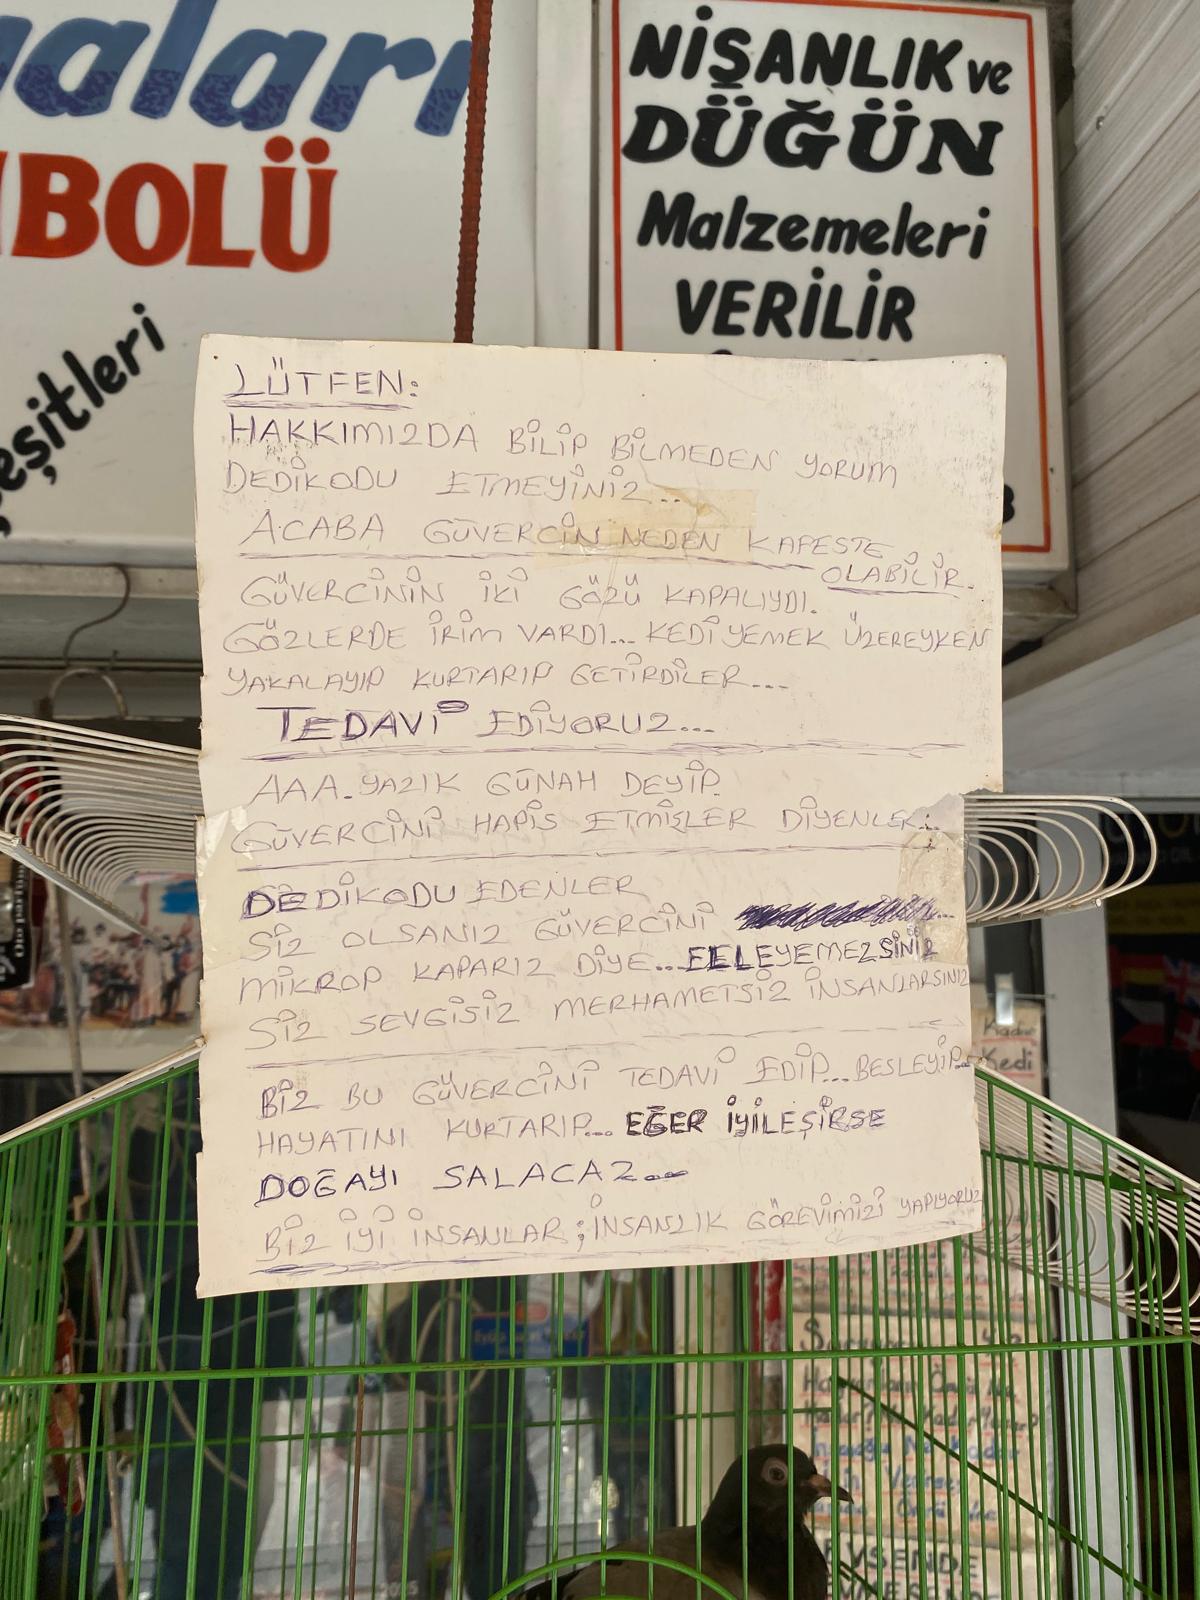 aları
BOLÜ
eşitleri
NİŞANLIK ve
DÜĞÜN
Malzemeleri
VERİLİR
LÜTFEN:
HAKKIMIZDA BİLİP BİLMEDEN YORUM
DEDİKODU ETMEYİNİZ...
ACABA GÜVERCİN NEDEN KAPESTE
OLABİLİR.
GÜVERCİNİN İKİ GÖZÜ KAPALIYDI.
GÖZLERDE İRİM VARDI... KEDİ YEMEK ÜZEREYKEN
YAKALAYIP KURTARIP GETİRDİLER...
TEDAVİ EDİYORUZ...
AAA. YAZIK GÜNAH DEYİP.
GÜVERCİNİ HAPİS ETMİŞLER DİYENLER..
DEDİKODU EDENLER
SİZ OLSANIZ GÜVERCİNİ
MİKROP KAPARIZ DİYE... ELLEYEMEZSİNİZ
SİZ SEVGİSİZ MERHAMETSİZ İNSANLARSINIZ
BİZ BU GÜVERCİNİ TEDAVİ EDİP... BESLEYİP...
HAYATINI KURTARIP... EĞER İYİLEŞİRSE
DOĞAYI SALACAZ...
BİZ İYİ İNSANLAR; İNSANLIK GÖREVİMİZİ YAPIYORUZ
Kadar
Kedi